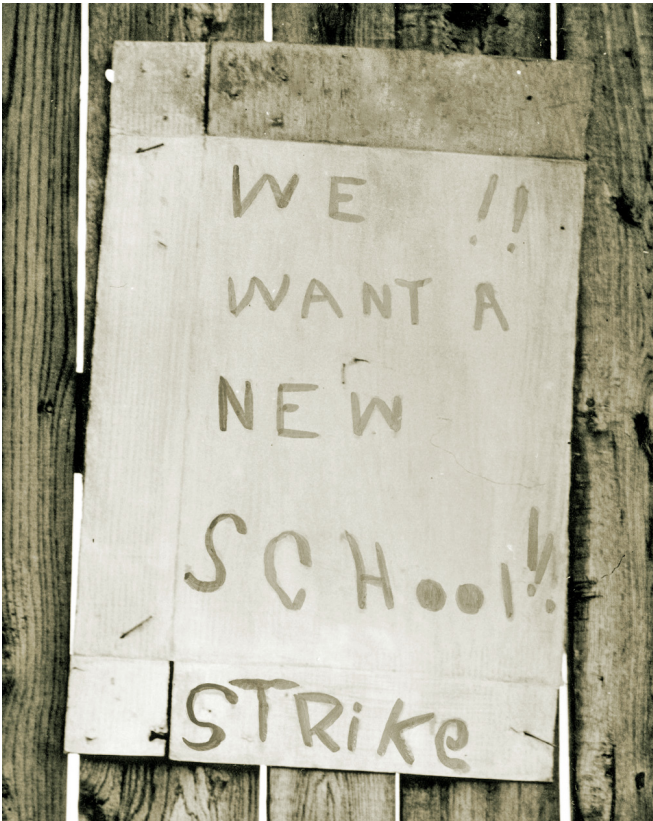 WE !!
WANT A
NEW
SCHool!!
STRiKe